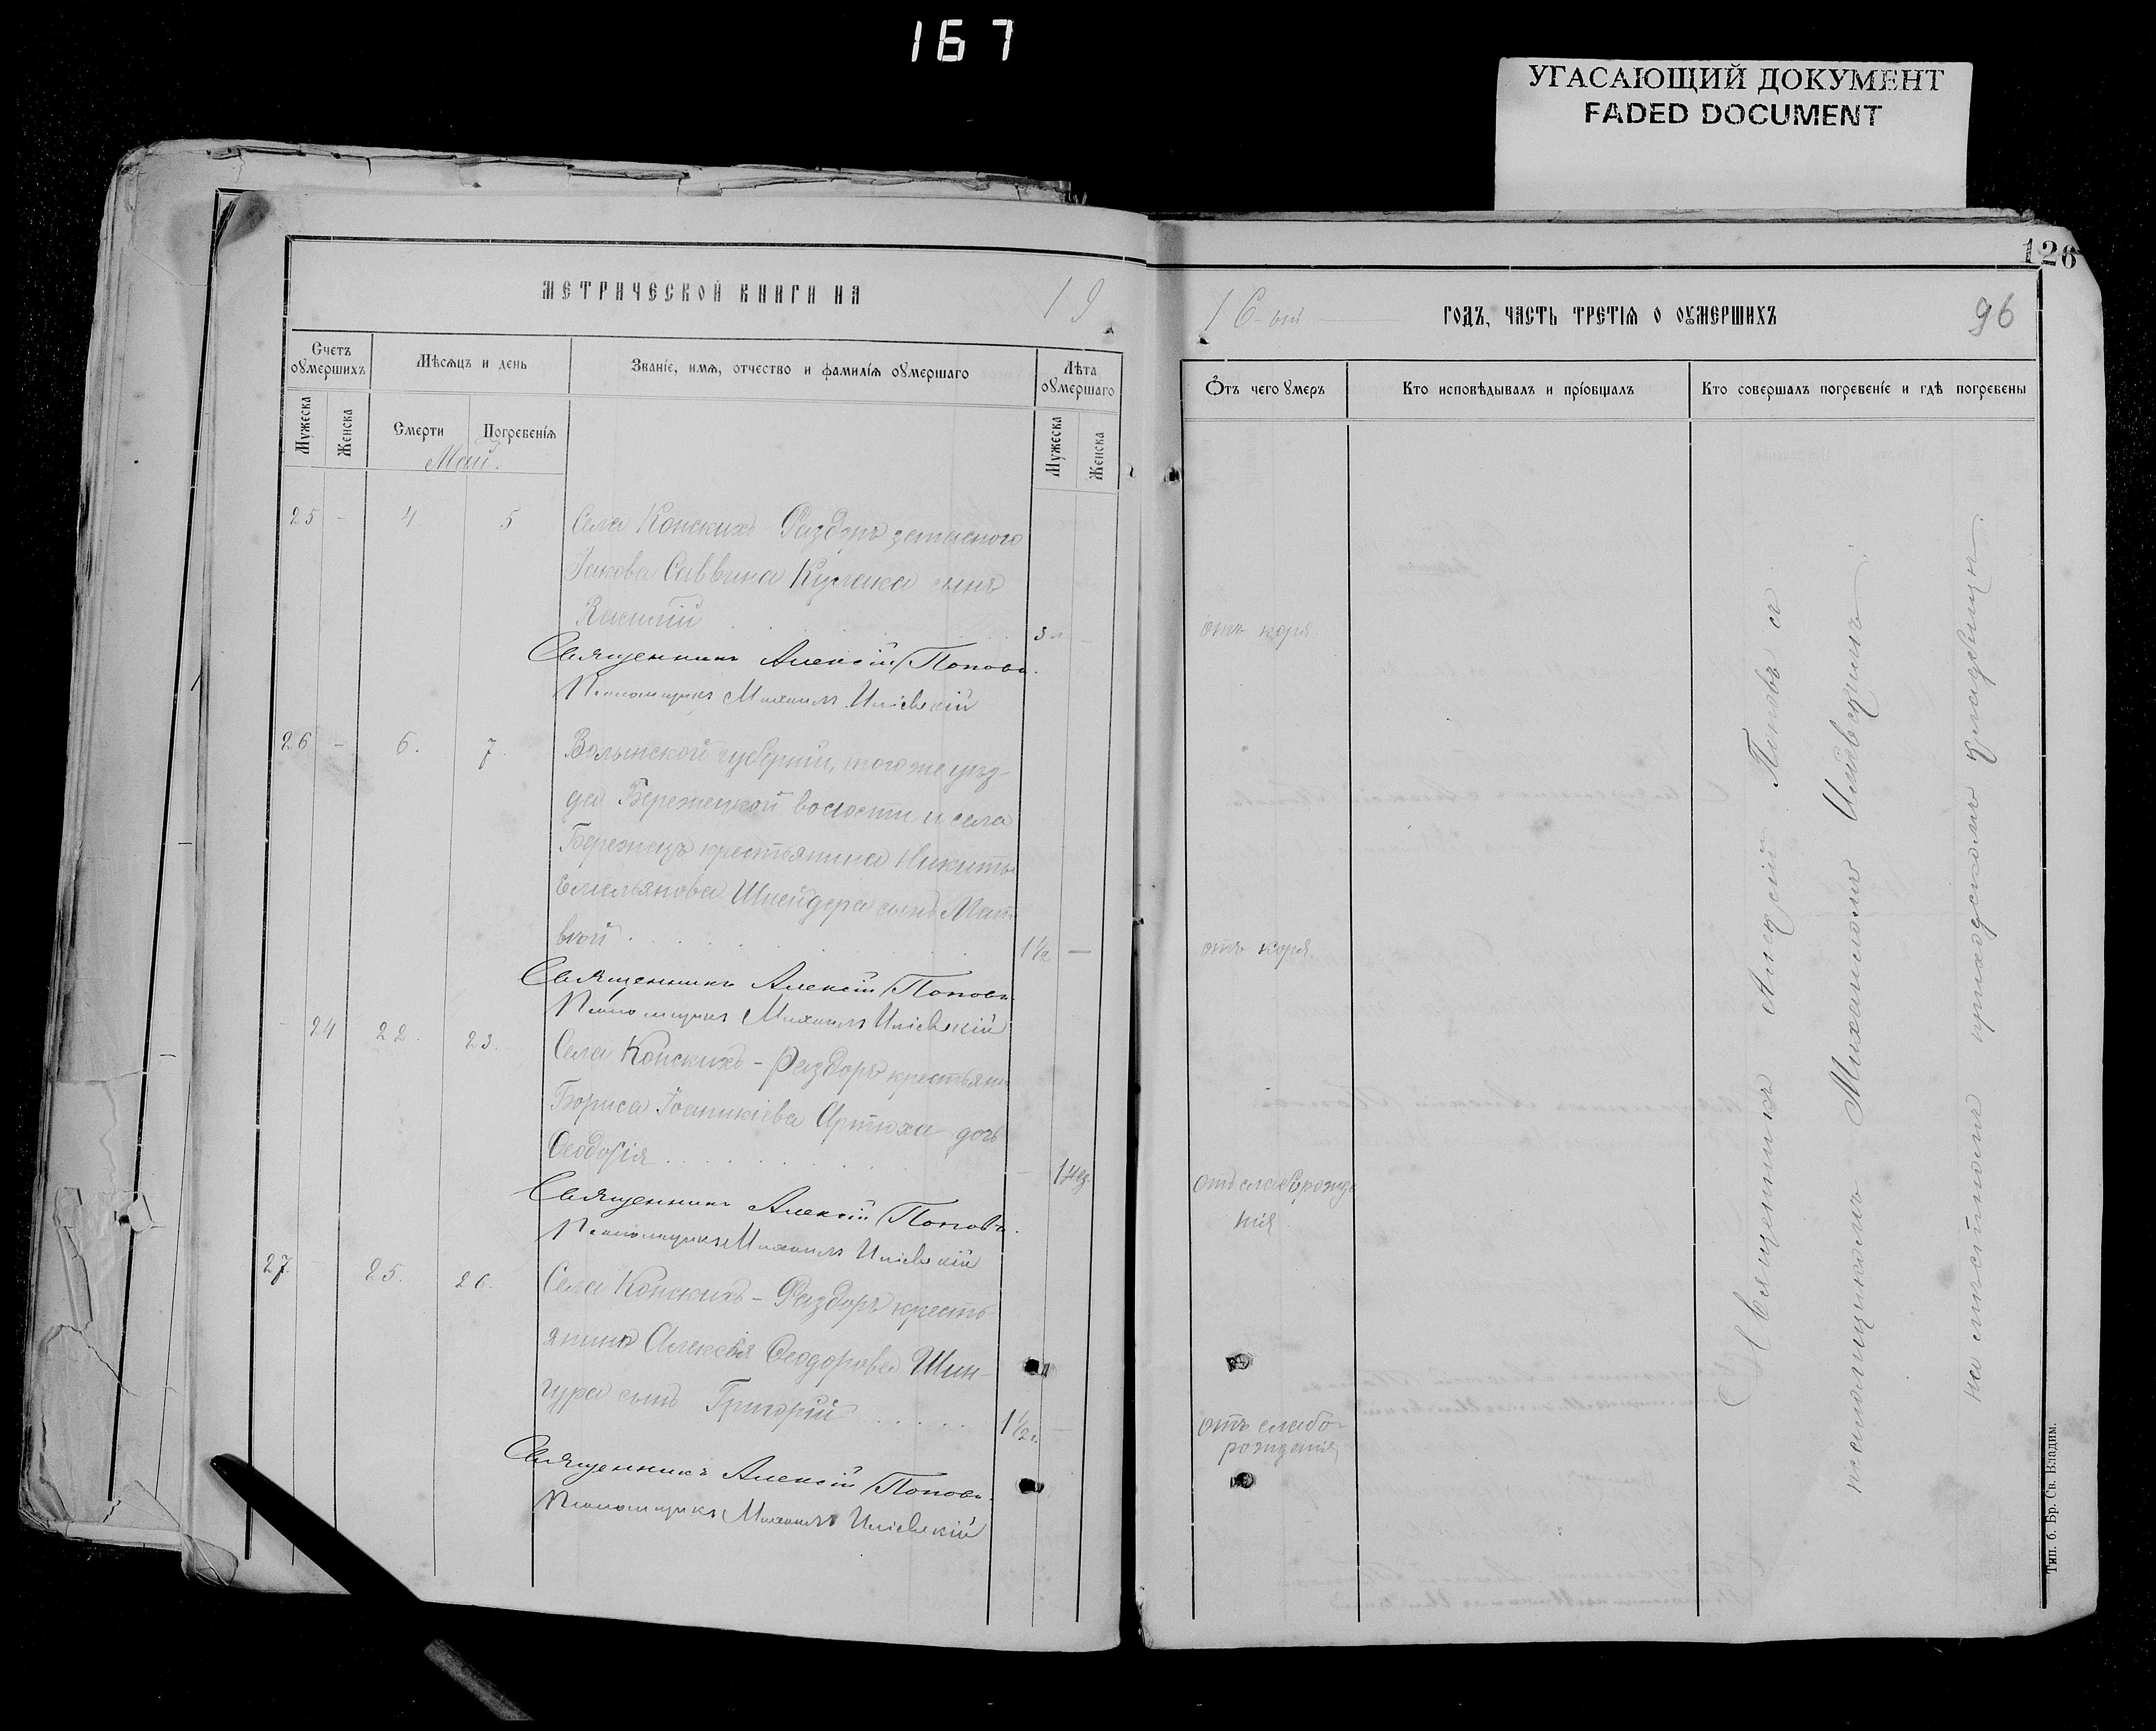 167
УГАСАЮЩИЙ ДОКУМЕНТ
FADED DOCUMENT
126
МЕТРИЧЕСКОЙ КНИГИ НА 19
16-ый ГОДЪ, ЧАСТЬ ТРЕТІЯ О ОУМЕРШИХЪ 96
Счетъ оумершихъ
Мужеска
Женска
Мѣсяцъ и день
Смерти
Погребенія
Званіе, имя, отчество и фамилія оумершаго
Лѣта оумершаго
Мужеска
Женска
Отъ чего умеръ
Кто исповѣдывалъ и пріобщалъ
Кто совершалъ погребеніе и гдѣ погребены
Май.
25 - 4 5 Села Конскихъ-Раздоръ
Іакова Саввина Кулака сынъ
3 л - отъ коря.
Священникъ Алексій Поповъ.
Псаломщикъ Михаилъ Иліевскій
26 - 6. 7. Волынской губерніи, того же уѣз-
да Бережецкой волости и села
Бережецъ крестьянина Никиты
Емильянова Шнейдера сынъ Мат-
вѣй 1½ — отъ коря
Священникъ Алексій Поповъ.
Псаломщикъ Михаилъ Иліевскій
- 24 22. 23. Села Конскихъ-Раздоръ крестьянина
Бориса Іоаникіева Артюха дочь
Ѳеодосія - 1 нед. отъ слаборожде
нія
Священникъ Алексій Поповъ.
Псаломщикъ Михаилъ Иліевскій
27. - 25. 26. Села Конскихъ-Раздоръ кресть-
янина Алексѣя Ѳеодорова Шин-
гура сынъ Григорій 1½ г. - отъ слабо-
рожденія
Священникъ Алексій Поповъ.
Псаломщикъ Михаилъ Иліевскій
Священникъ Алексій Поповъ съ
псаломщикомъ Михаиломъ Иліевскимъ
на мѣстномъ приходскомъ кладбищѣ.
Тип. б. Бр. Св. Владим.